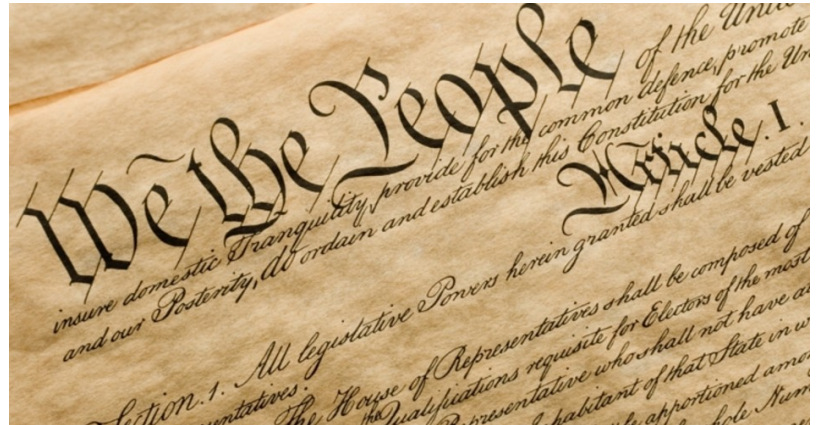 We the People of the Unit
insure domestic Tranquility, provide for the common defence, promote
and our Posterity, do ordain and establish this Constitution for the Un
Article. I.
Section. 1. All legislative Powers herein granted shall be vested
entatives.
The House of Representatives shall be composed of
the Qualifications requisite for Electors of the most
Representative who shall not have a
habitant of that State in w
apportioned amo
hole Num